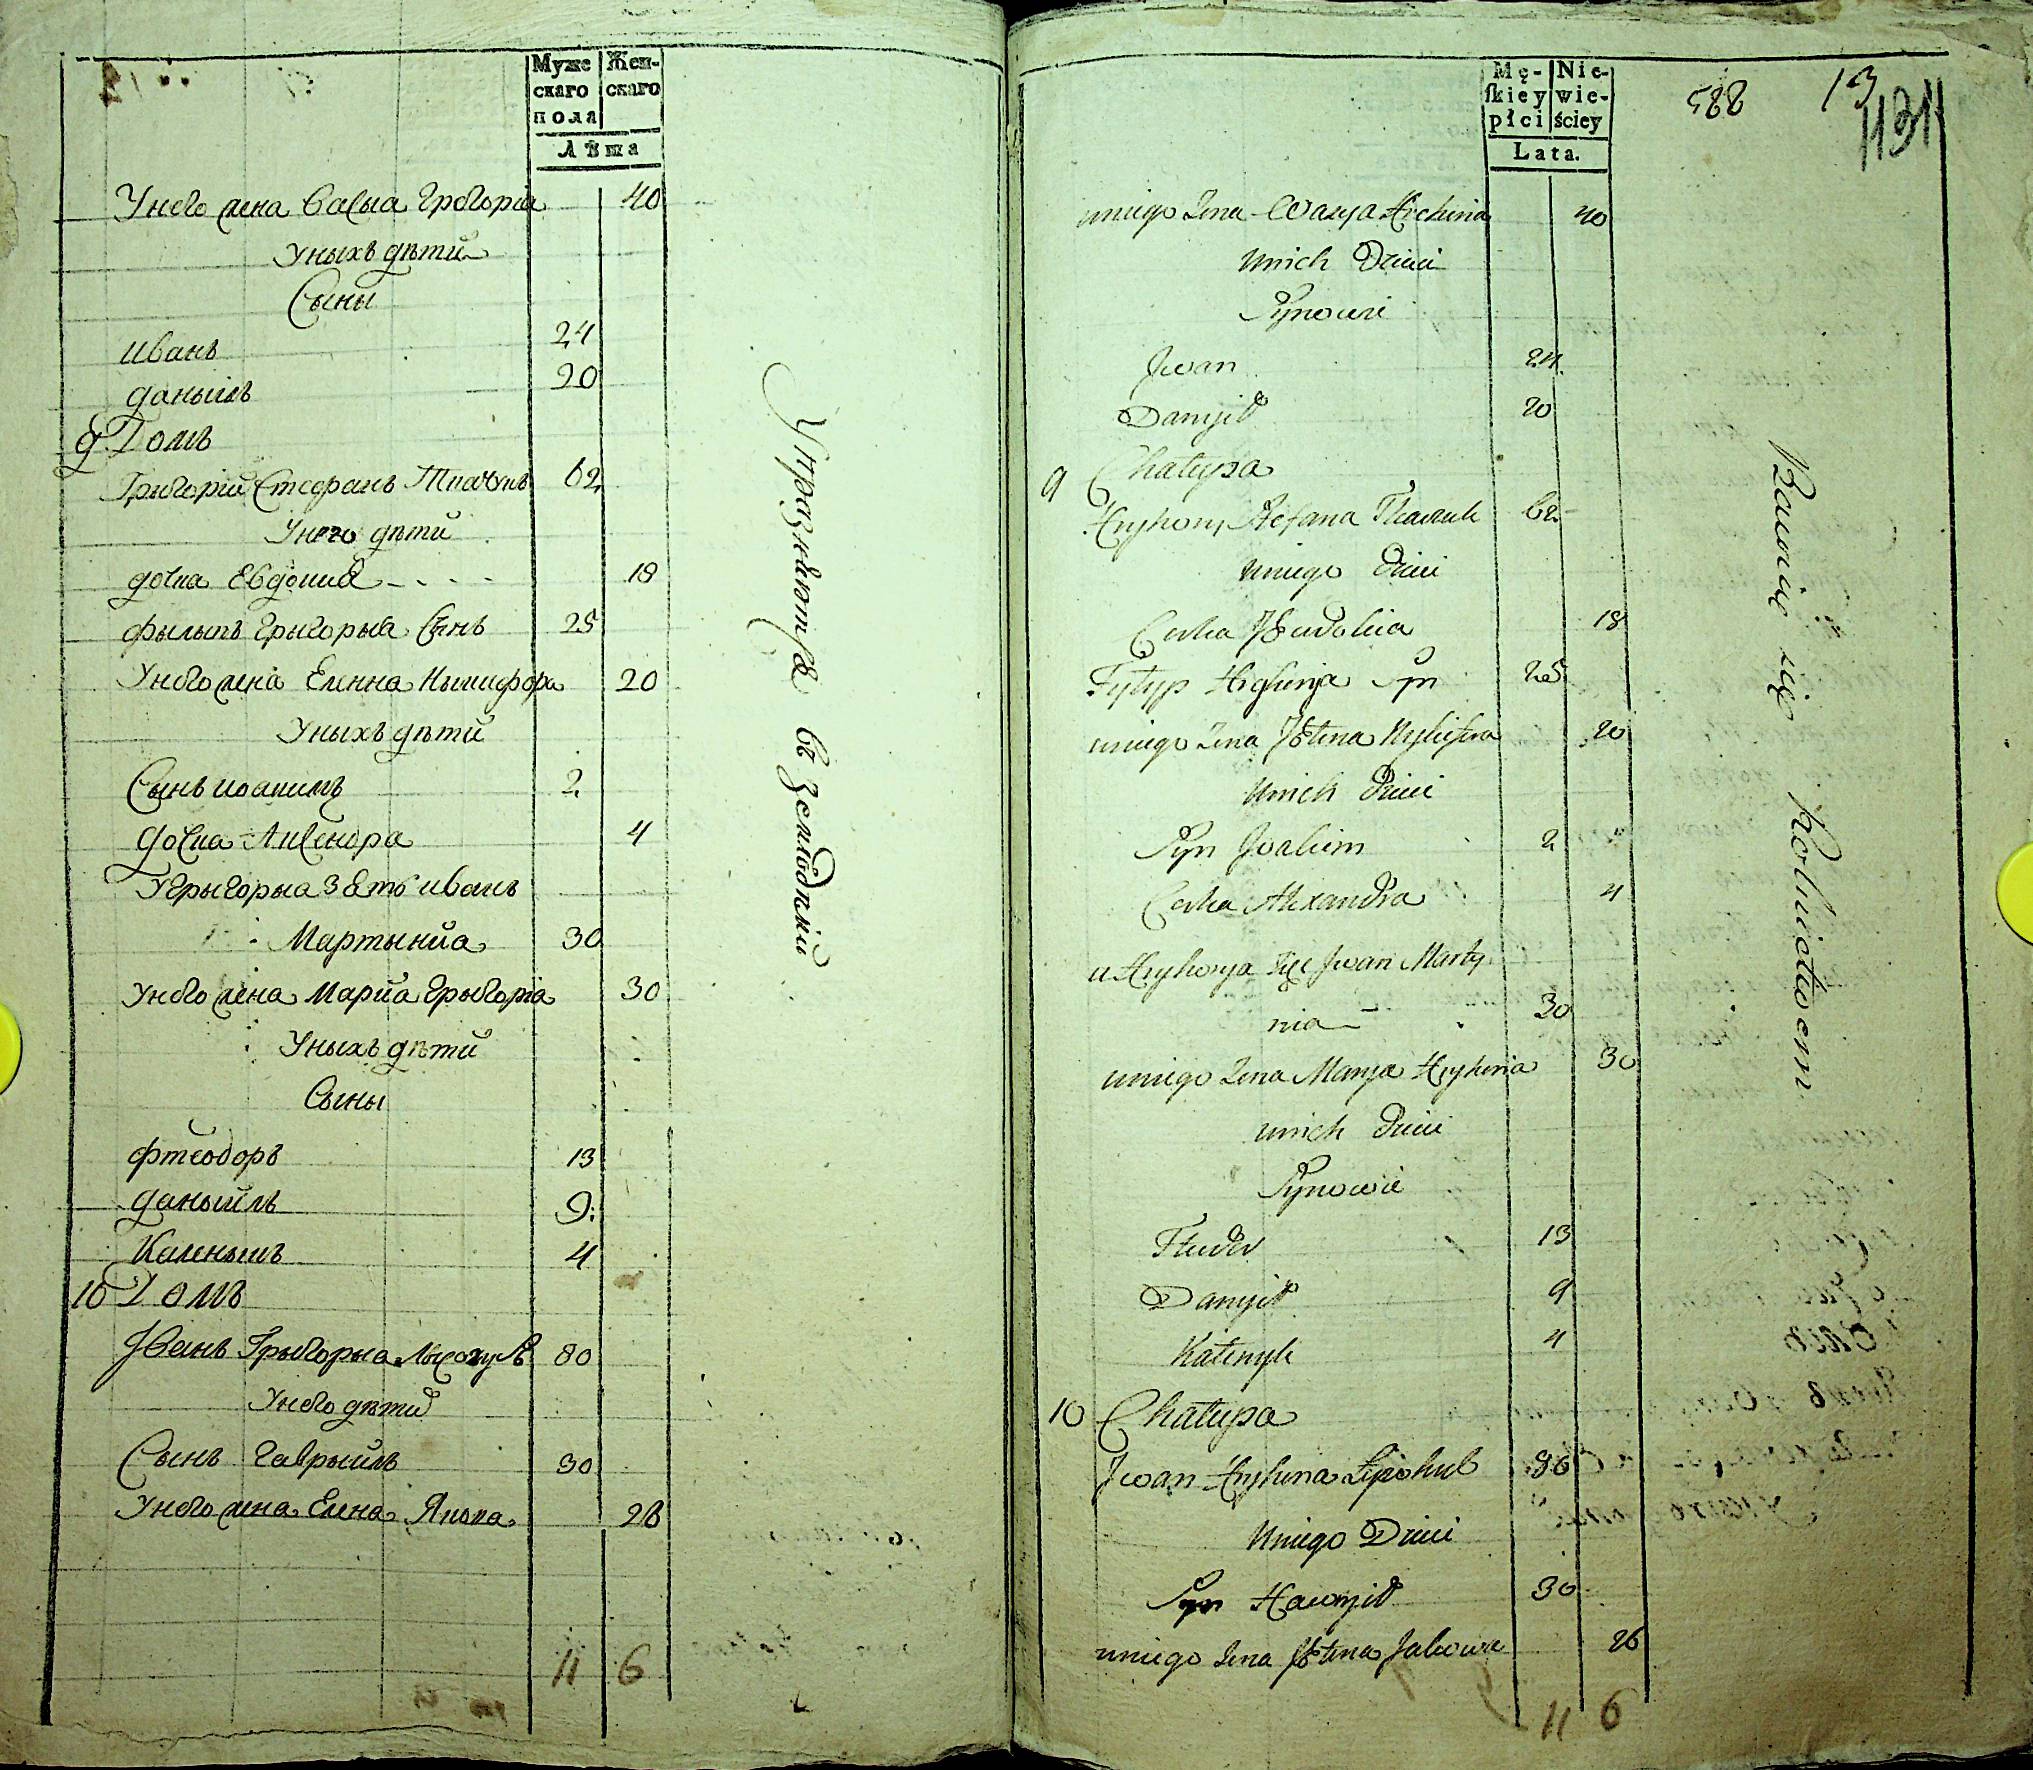 Муже
скаго
пола
Жен-
скаго
Лѣта
Унего жена Васка Григориа 40
Уныхъ дѣти
Сыны
Иванъ 24
Даныилъ 20
9 Домъ
Григорий Стефанъ Ткачукъ 62
Унего дѣти
дочка Евдокиа 18
Филипъ Григорыа Сынъ 25
Унего жена Еленна Никифора 20
Уныхъ дѣти
Сынъ Иоакимъ 2
дочка 4
У Григорыа Зять Иванъ
Мартыниа 30
Унего жена Мариа Григориа 30
Уныхъ дѣти
Сыны
Фтеодоръ 13
Даныилъ 9
Каленыкъ 4
10 Домъ
Иванъ Григорыа 80
Унего дѣти
Сынъ Гаврыилъ 30
Унего жена Елена Якова 26
11 6
Упражняютъся въ земледѣлій
Mę-
skiey
płci
Nie-
wie-
ściey
Lata.
588
13
1131
uniego Zona 40
unich Dzieci
Synowie
Jwan 24
Danyił 20
9 Chałupa
Hryhory Stefana Tkaczuk 62
uniego dzieci
Corka Jewdokia 18
Fyłyp Hryhorja syn 25
uniego Zona Jełena Nykifora 20
unich dzieci
Syn Joakim 2
Corka Alexandra 4
u Hryhorya Zięć Jwan Marty
nia 30
uniego Zona Marya Hryhoria 30
unich dzieci
Synowie
Fteodor 13
Danyił 9
Kałenyk 4
10 Chałupa
Jwan Hryhoria 80
uniego Dzieci
Syn Hawryił 30
uniego Zona Jełena Jakowa 26
11 6
Bawią się Rolnictwem